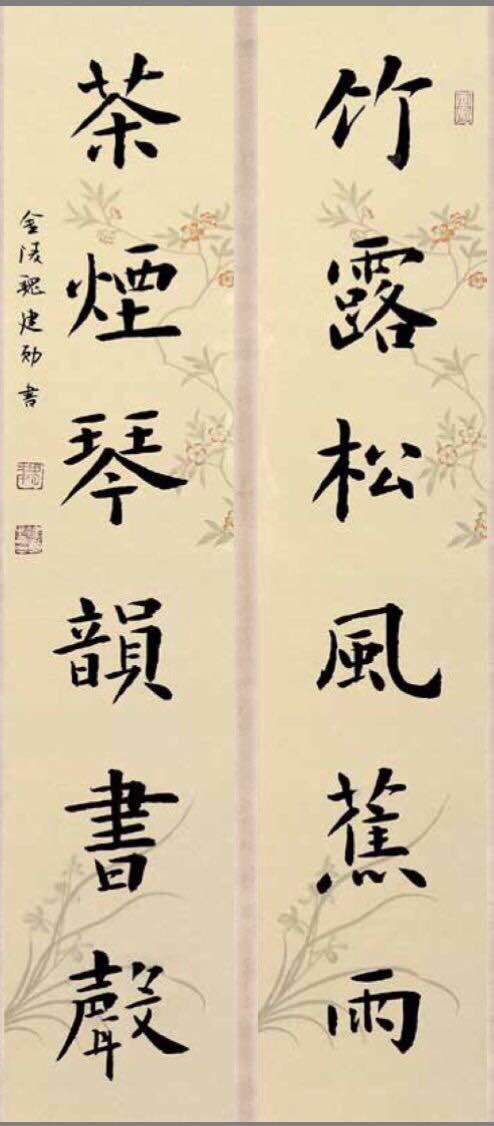 竹露松風蕉雨
茶煙琴韻書聲
金陵魏建勋書